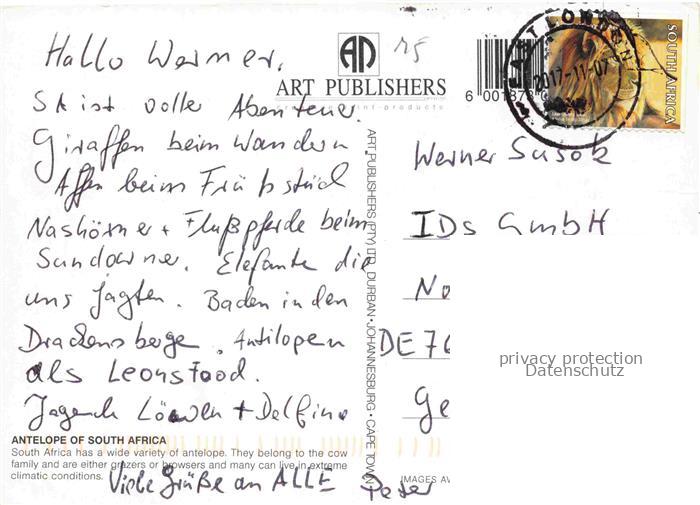 Hallo Werner,
SA ist voller Abenteuer.
Giraffen beim Wandern
Affen beim Frühstück
Nashörner + Flußpferde beim
Sundowner. Elefanten die
uns jagten. Baden in den
Drackensberge. Antilopen
als Leonsfood.
Jagende Löwen + Delfine
Viele Grüße an ALLE Peter
ANTELOPE OF SOUTH AFRICA
South Africa has a wide variety of antelope. They belong to the cow
family and are either grazers or browsers and many can live in extreme
climatic conditions.
AP
ART PUBLISHERS
ART PUBLISHERS (PTY) LTD, DURBAN • JOHANNESBURG • CAPE TOWN
IMAGES AV
6 001878
2017-11-07
SOUTH AFRICA
Werner Susok
IDs GmbH
No
DE 76
Ge
privacy protection
Datenschutz